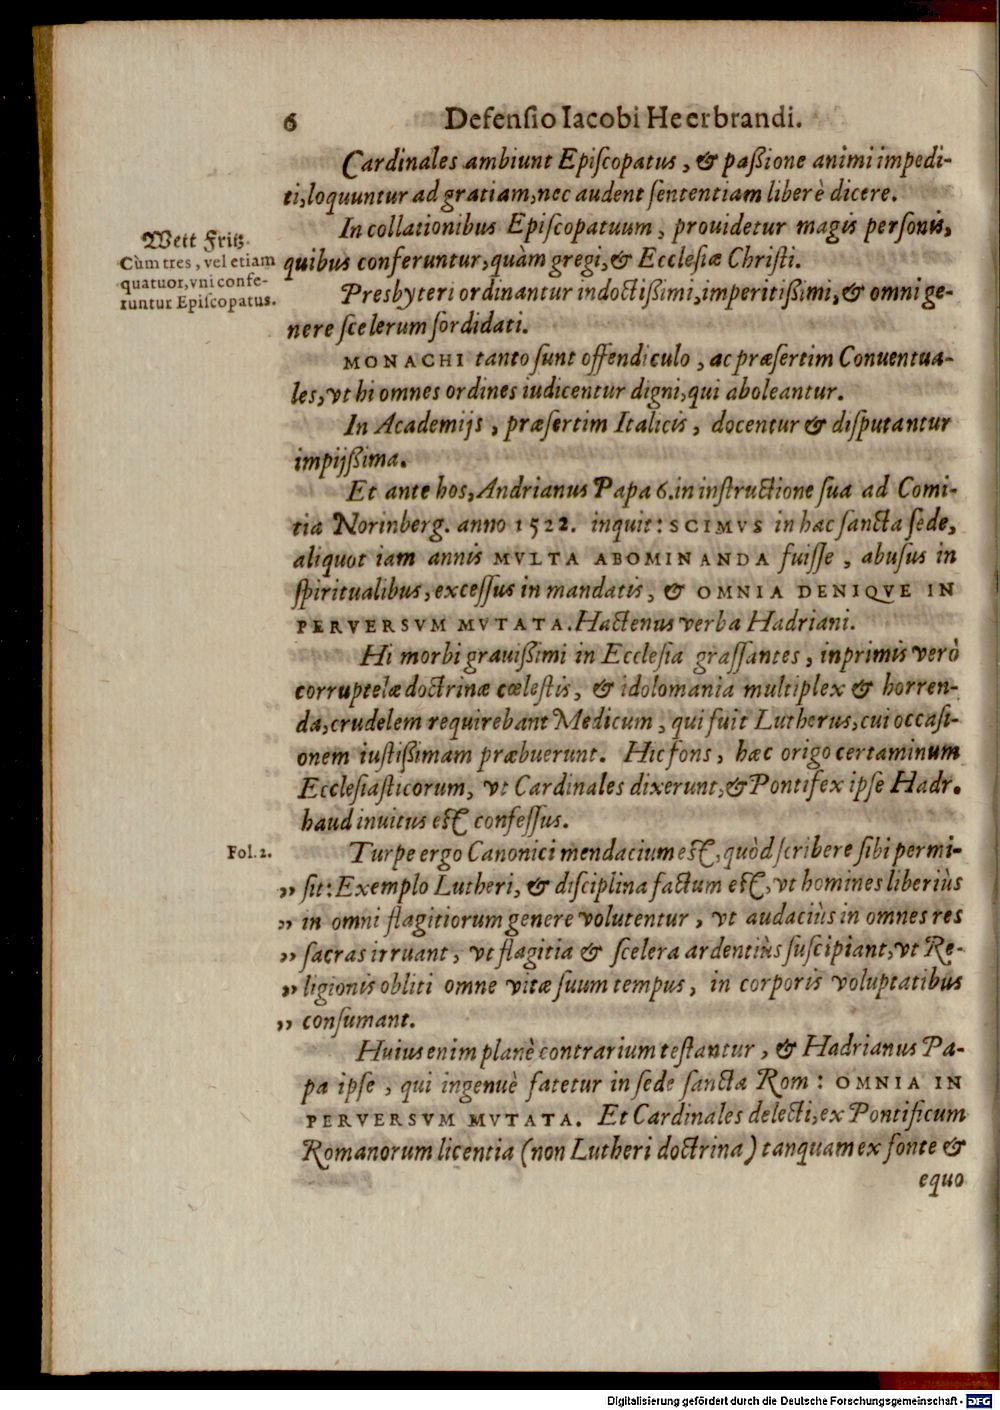 6 Defenſio Iacobi Heerbrandi.
Cardinales ambiunt Epiſcopatus, & paßione animi impedi-
ti, loquuntur ad gratiam, nec audent ſententiam liberè dicere.
In collationibus Epiſcopatuum, prouidetur magis perſonis,
quibus conferuntur, quàm gregi, & Eccleſiæ Chriſti.
Wett Fritz.
Cùm tres, vel etiam
quatuor, vni confe-
runtur Epiſcopatus.
Presbyteri ordinantur indoctißimi, imperitißimi, & omni ge-
nere ſcelerum ſordidati.
MONACHI tanto ſunt offendiculo, ac præſertim Conuentua-
les, vt hi omnes ordines iudicentur digni, qui aboleantur.
In Academijs, præſertim Italicis, docentur & diſputantur
impijßima.
Et ante hos, Andrianus Papa 6. in inſtructione ſua ad Comi-
tia Norinberg. anno 1522. inquit: SCIMVS in hac ſancta ſede,
aliquot iam annis MVLTA ABOMINANDA fuiſſe, abuſus in
ſpiritualibus, exceſſus in mandatis, & OMNIA DENIQVE IN
PERVERSVM MVTATA. Hactenus verba Hadriani.
Hi morbi grauißimi in Eccleſia graſſantes, inprimis verò
corruptelæ doctrinæ cœleſtis, & idolomania multiplex & horren-
da, crudelem requirebant Medicum, qui fuit Lutherus, cui occaſi-
onem iuſtißimam præbuerunt. Hic fons, hæc origo certaminum
Eccleſiaſticorum, vt Cardinales dixerunt, & Pontifex ipſe Hadr.
haud inuitus eſt confeſſus.
Fol. 2.
Turpe ergo Canonici mendacium eſt, quòd ſcribere ſibi permi-
„ ſit: Exemplo Lutheri, & diſciplina factum eſt, vt homines liberiùs
„ in omni flagitiorum genere volutentur, vt audaciùs in omnes res
„ ſacras irruant, vt flagitia & ſcelera ardentiùs ſuſcipiant, vt Re-
„ ligionis obliti omne vitæ ſuum tempus, in corporis voluptatibus
„ conſumant.
Huius enim planè contrarium teſtantur, & Hadrianus Pa-
pa ipſe, qui ingenuè fatetur in ſede ſancta Rom: OMNIA IN
PERVERSVM MVTATA. Et Cardinales delecti, ex Pontificum
Romanorum licentia (non Lutheri doctrina) tanquam ex fonte &
equo
Digitalisierung gefördert durch die Deutsche Forschungsgemeinschaft - DFG